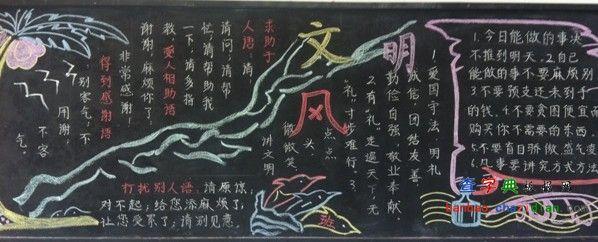 求助于
人语:请
请问;请帮
忙请帮助我
一下;请多指
教;受人相助语
谢谢,麻烦你了!
非常感谢!
得到感谢语
别客气;不
用谢
不客
气。
文明风
1.爱国守法,明礼
诚信,团结友善
勤俭自强,敬业奉献.
2.有“礼”走遍天下,无
“礼”寸步难行。3.
点点
头
微微笑
讲文明
打扰别人语:清原谅
对不起;给您添麻烦了;
让您受累了;请别见意.
班
1.今日能做的事决
不推到明天。2.自己
能做的事不要麻烦别
3.不要预支还未到手
的钱.4.不要贪图便宜而
购买你不需要的东西.
5.不要盲目骄傲,盛气凌
6.凡事要讲究方式方法
查字典 板报网
banbao.chazidian.com